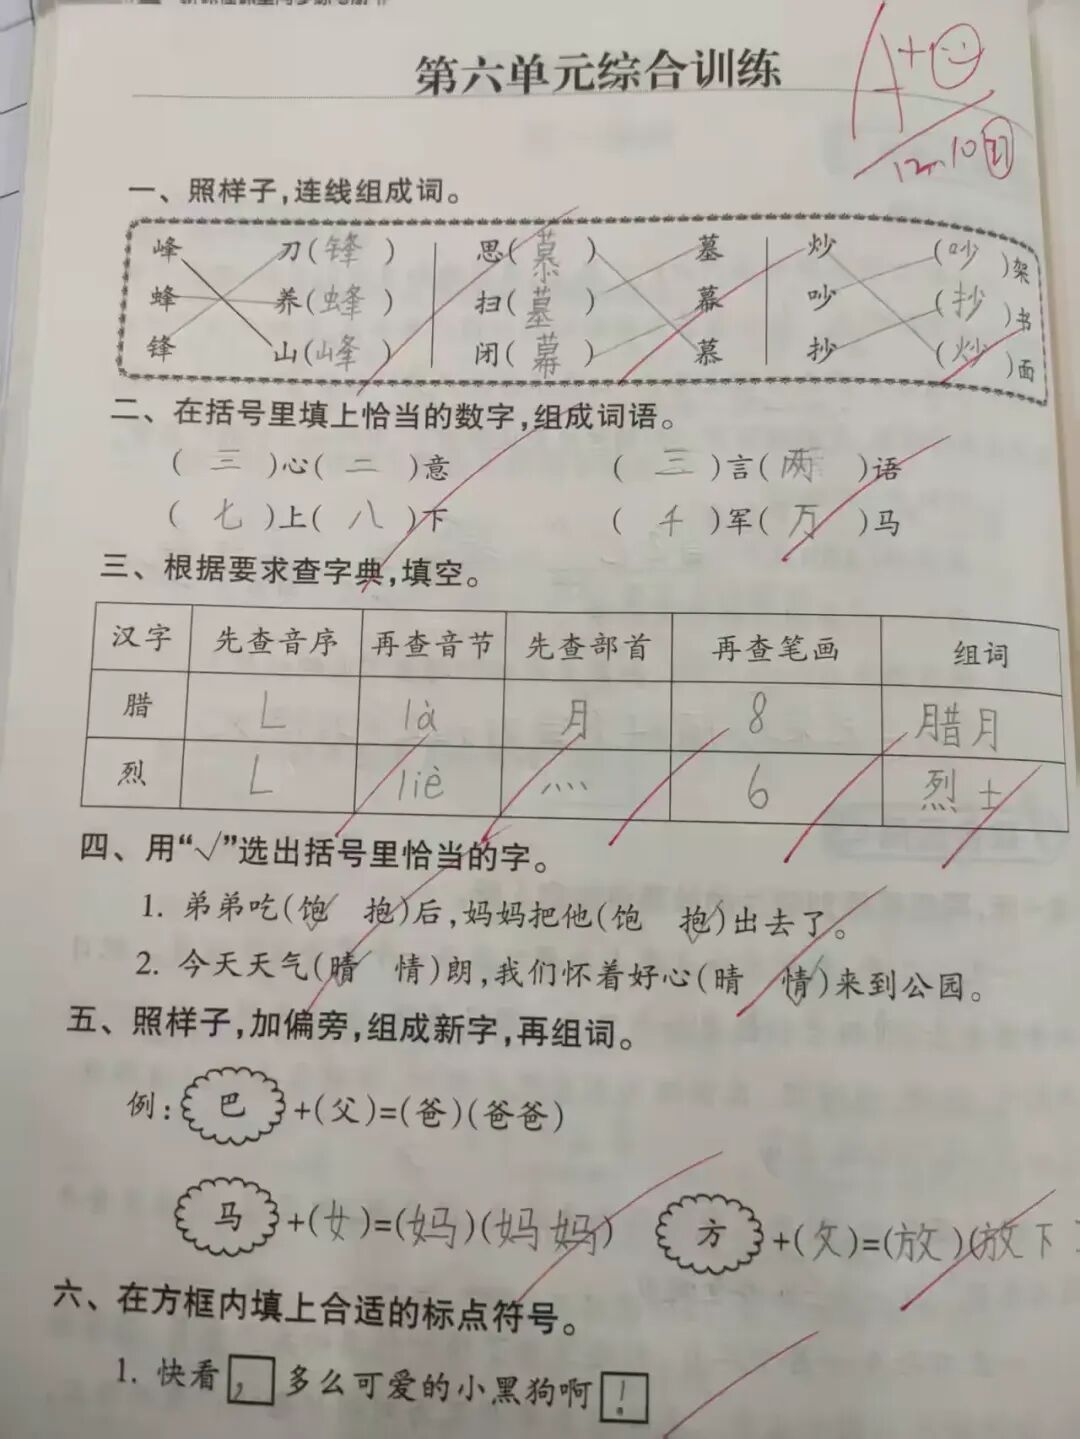 第六单元综合训练
A+
12.10日
一、照样子,连线组成词。
峰 刀(锋) 思(慕) 墓 炒 (吵)架
蜂 养(蜂) 扫(墓) 幕 吵 (抄)书
锋 山(峰) 闭(幕) 慕 抄 (炒)面
二、在括号里填上恰当的数字,组成词语。
(三)心(二)意 (三)言(两)语
(七)上(八)下 (千)军(万)马
三、根据要求查字典,填空。
汉字 先查音序 再查音节 先查部首 再查笔画 组词
腊 L là 月 8 腊月
烈 L liè 灬 6 烈士
四、用“√”选出括号里恰当的字。
1. 弟弟吃(饱√ 抱)后,妈妈把他(饱 抱√)出去了。
2. 今天天气(晴√ 情)朗,我们怀着好心(晴 情√)来到公园。
五、照样子,加偏旁,组成新字,再组词。
例: 巴+(父)=(爸)(爸爸)
马+(女)=(妈)(妈妈) 方+(攵)=(放)(放下
六、在方框内填上合适的标点符号。
1. 快看,多么可爱的小黑狗啊!